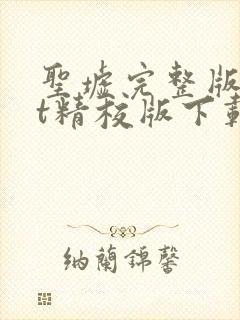 聖墟完整版
t精校版下載
納蘭錦馨